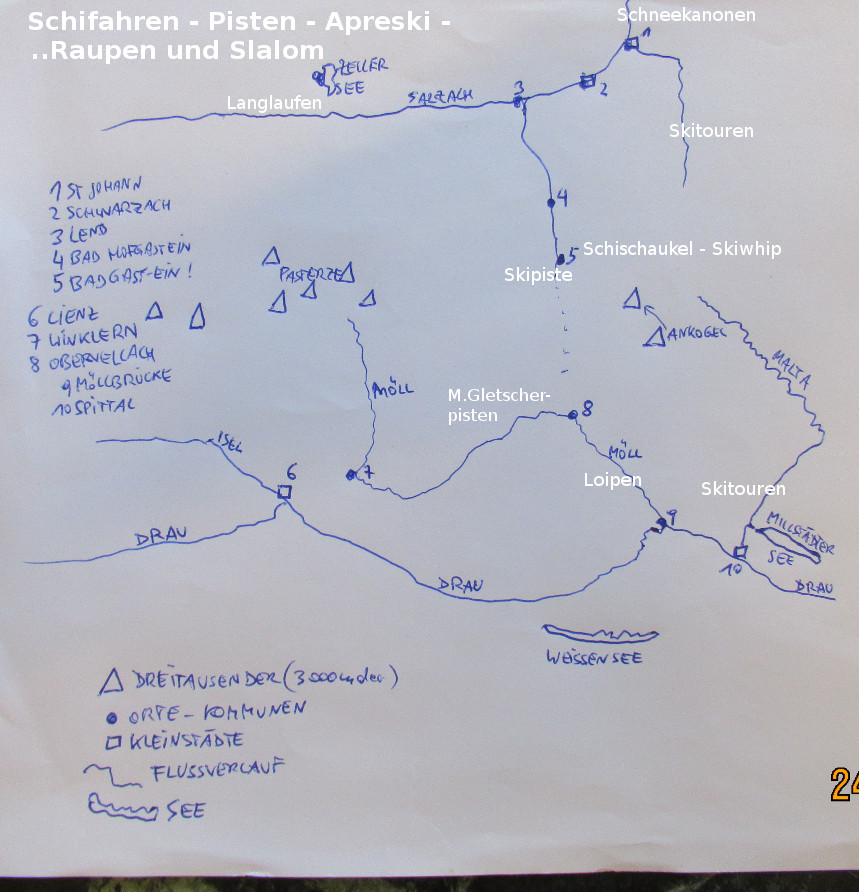 Schifahren - Pisten - Apreski -
..Raupen und Slalom
Schneekanonen
1
ZELLER
SEE
2
3
SALZACH
Langlaufen
Skitouren
1 ST JOHANN
2 SCHWARZACH
3 LEND
4 BAD HOFGASTEIN
5 BADGAST-EIN!
4
5
Schischaukel - Skiwhip
Skipiste
PASTERZE
ANKOGEL
6 LIENZ
7 WINKLERN
8 OBERVELLACH
9 MÖLLBRÜCKE
10 SPITTAL
MALTA
MÖLL
M.Gletscher-
pisten
8
ISEL
6
7
MÖLL
Loipen
Skitouren
9
DRAU
MILLSTÄDTER
SEE
10
DRAU
DRAU
WEISSENSEE
DREITAUSENDER (3000
ORTE - KOMMUNEN
KLEINSTÄDTE
FLUSSVERLAUF
SEE
24